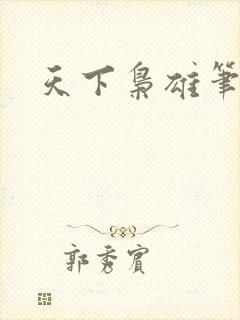 天下梟雄筆
郭秀賓